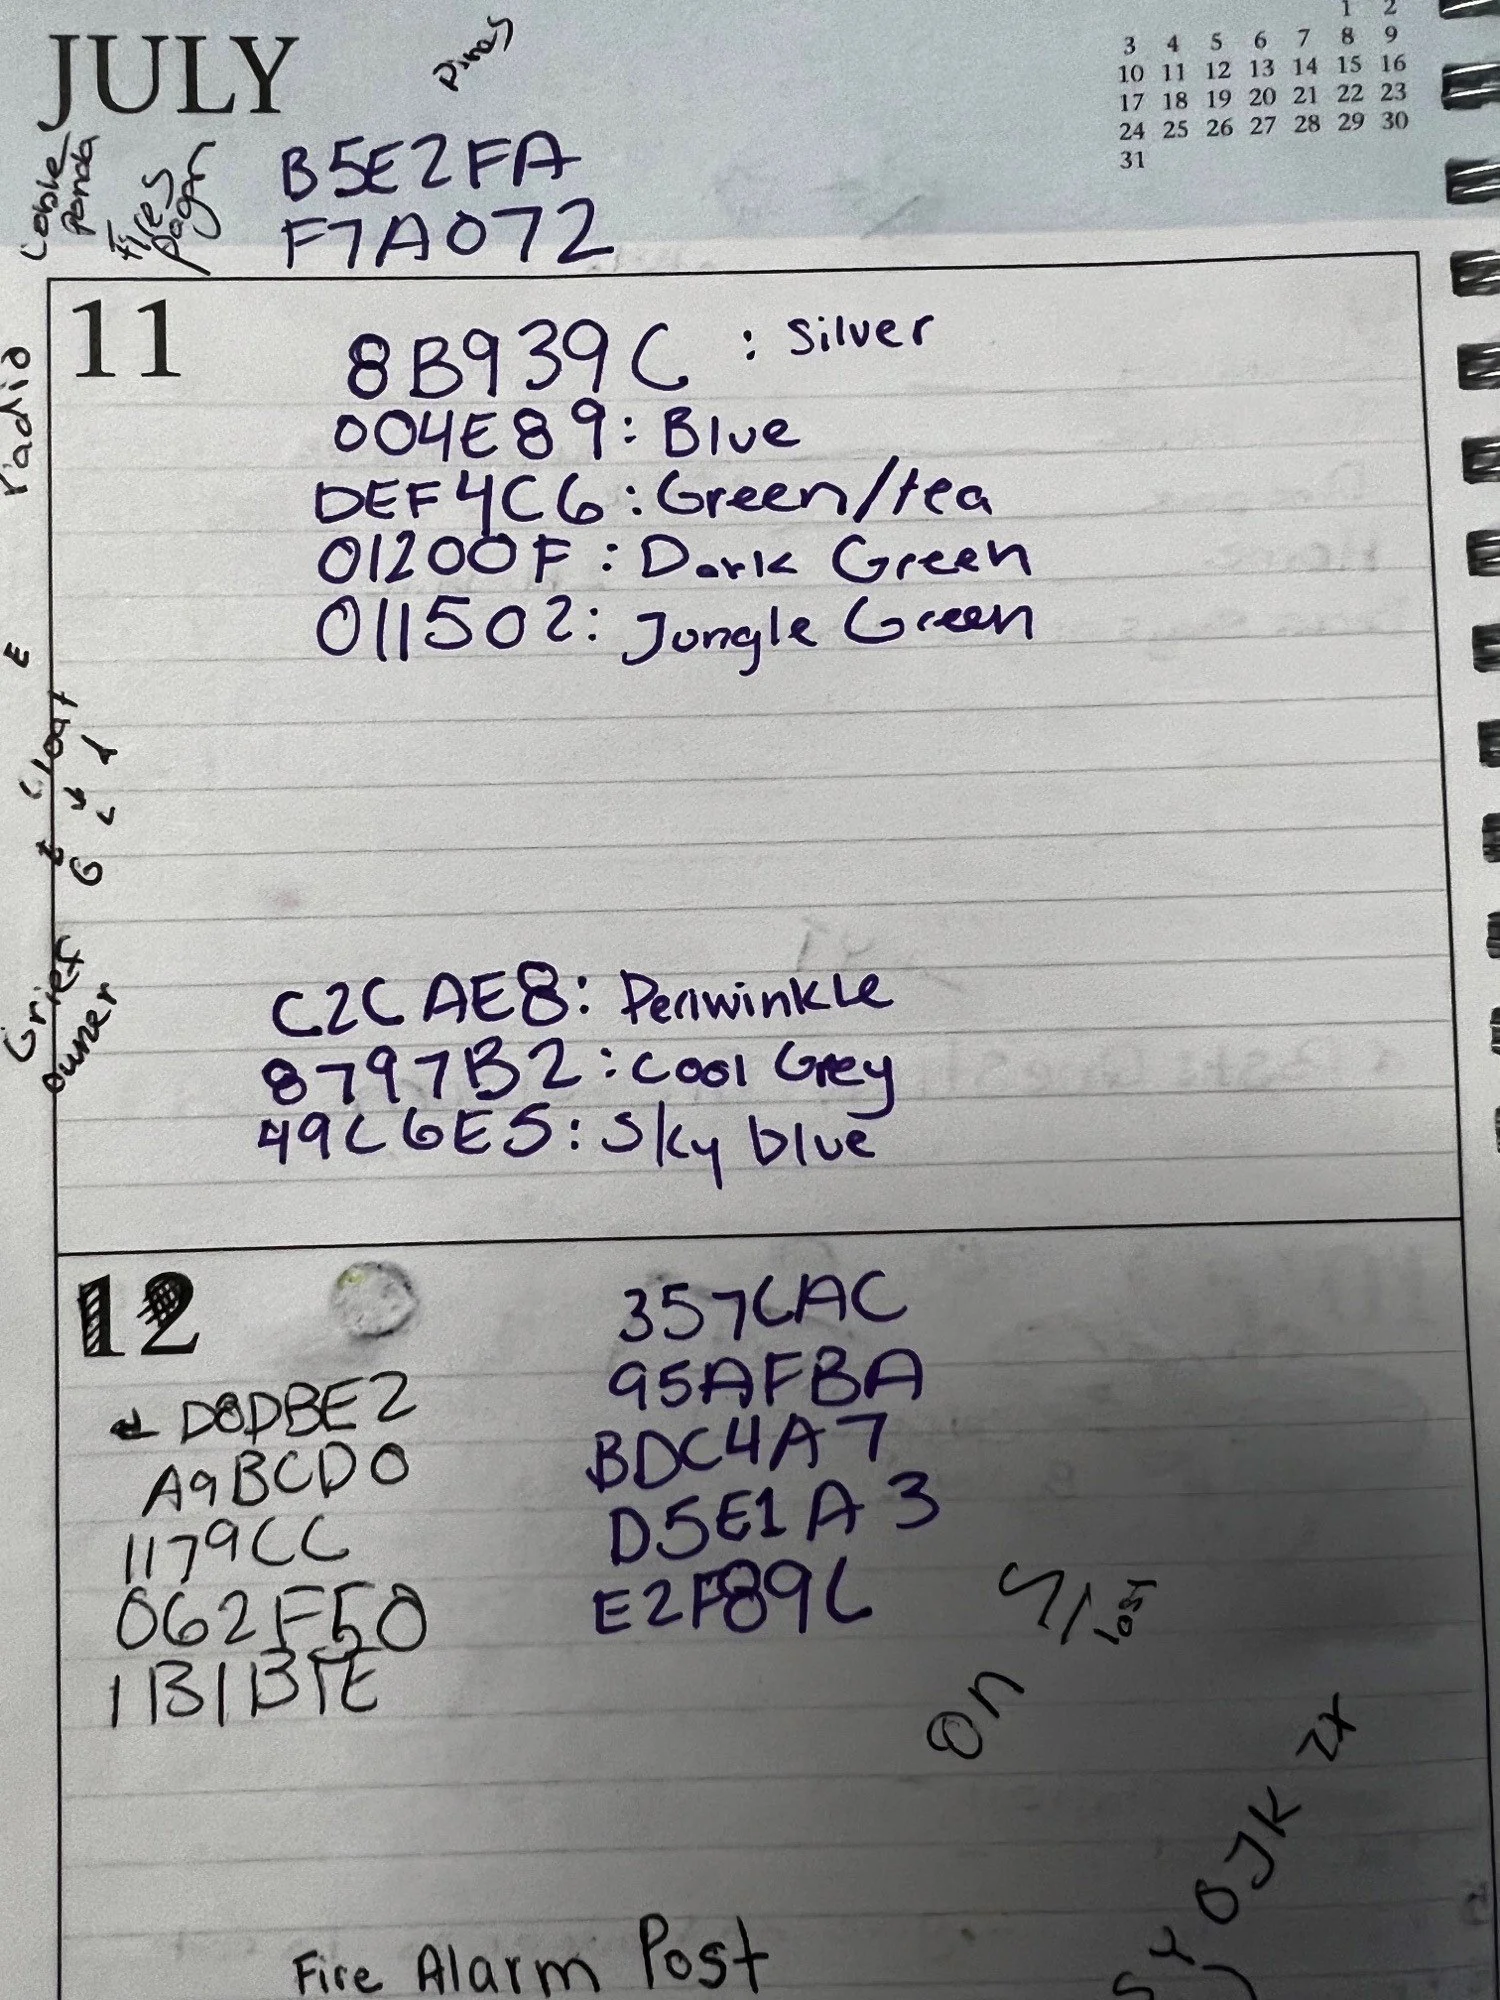 JULY
Pines
1 2
3 4 5 6 7 8 9
10 11 12 13 14 15 16
17 18 19 20 21 22 23
24 25 26 27 28 29 30
31
B5E2FA
F7A072
11
8B939C : Silver
004E89: Blue
DEF4C6: Green/tea
01200F: Dark Green
011502: Jungle Green
C2CAE8: Periwinkle
8797B2: Cool Grey
49C6E5: Sky blue
radio
E
float
Grief
owner
12
D8DBE2
A9BCD0
1179CC
062F50
1B1B1E
357CAC
95AFBA
BDC4A7
D5E1A3
E2F89C
on
lost
Fire Alarm Post